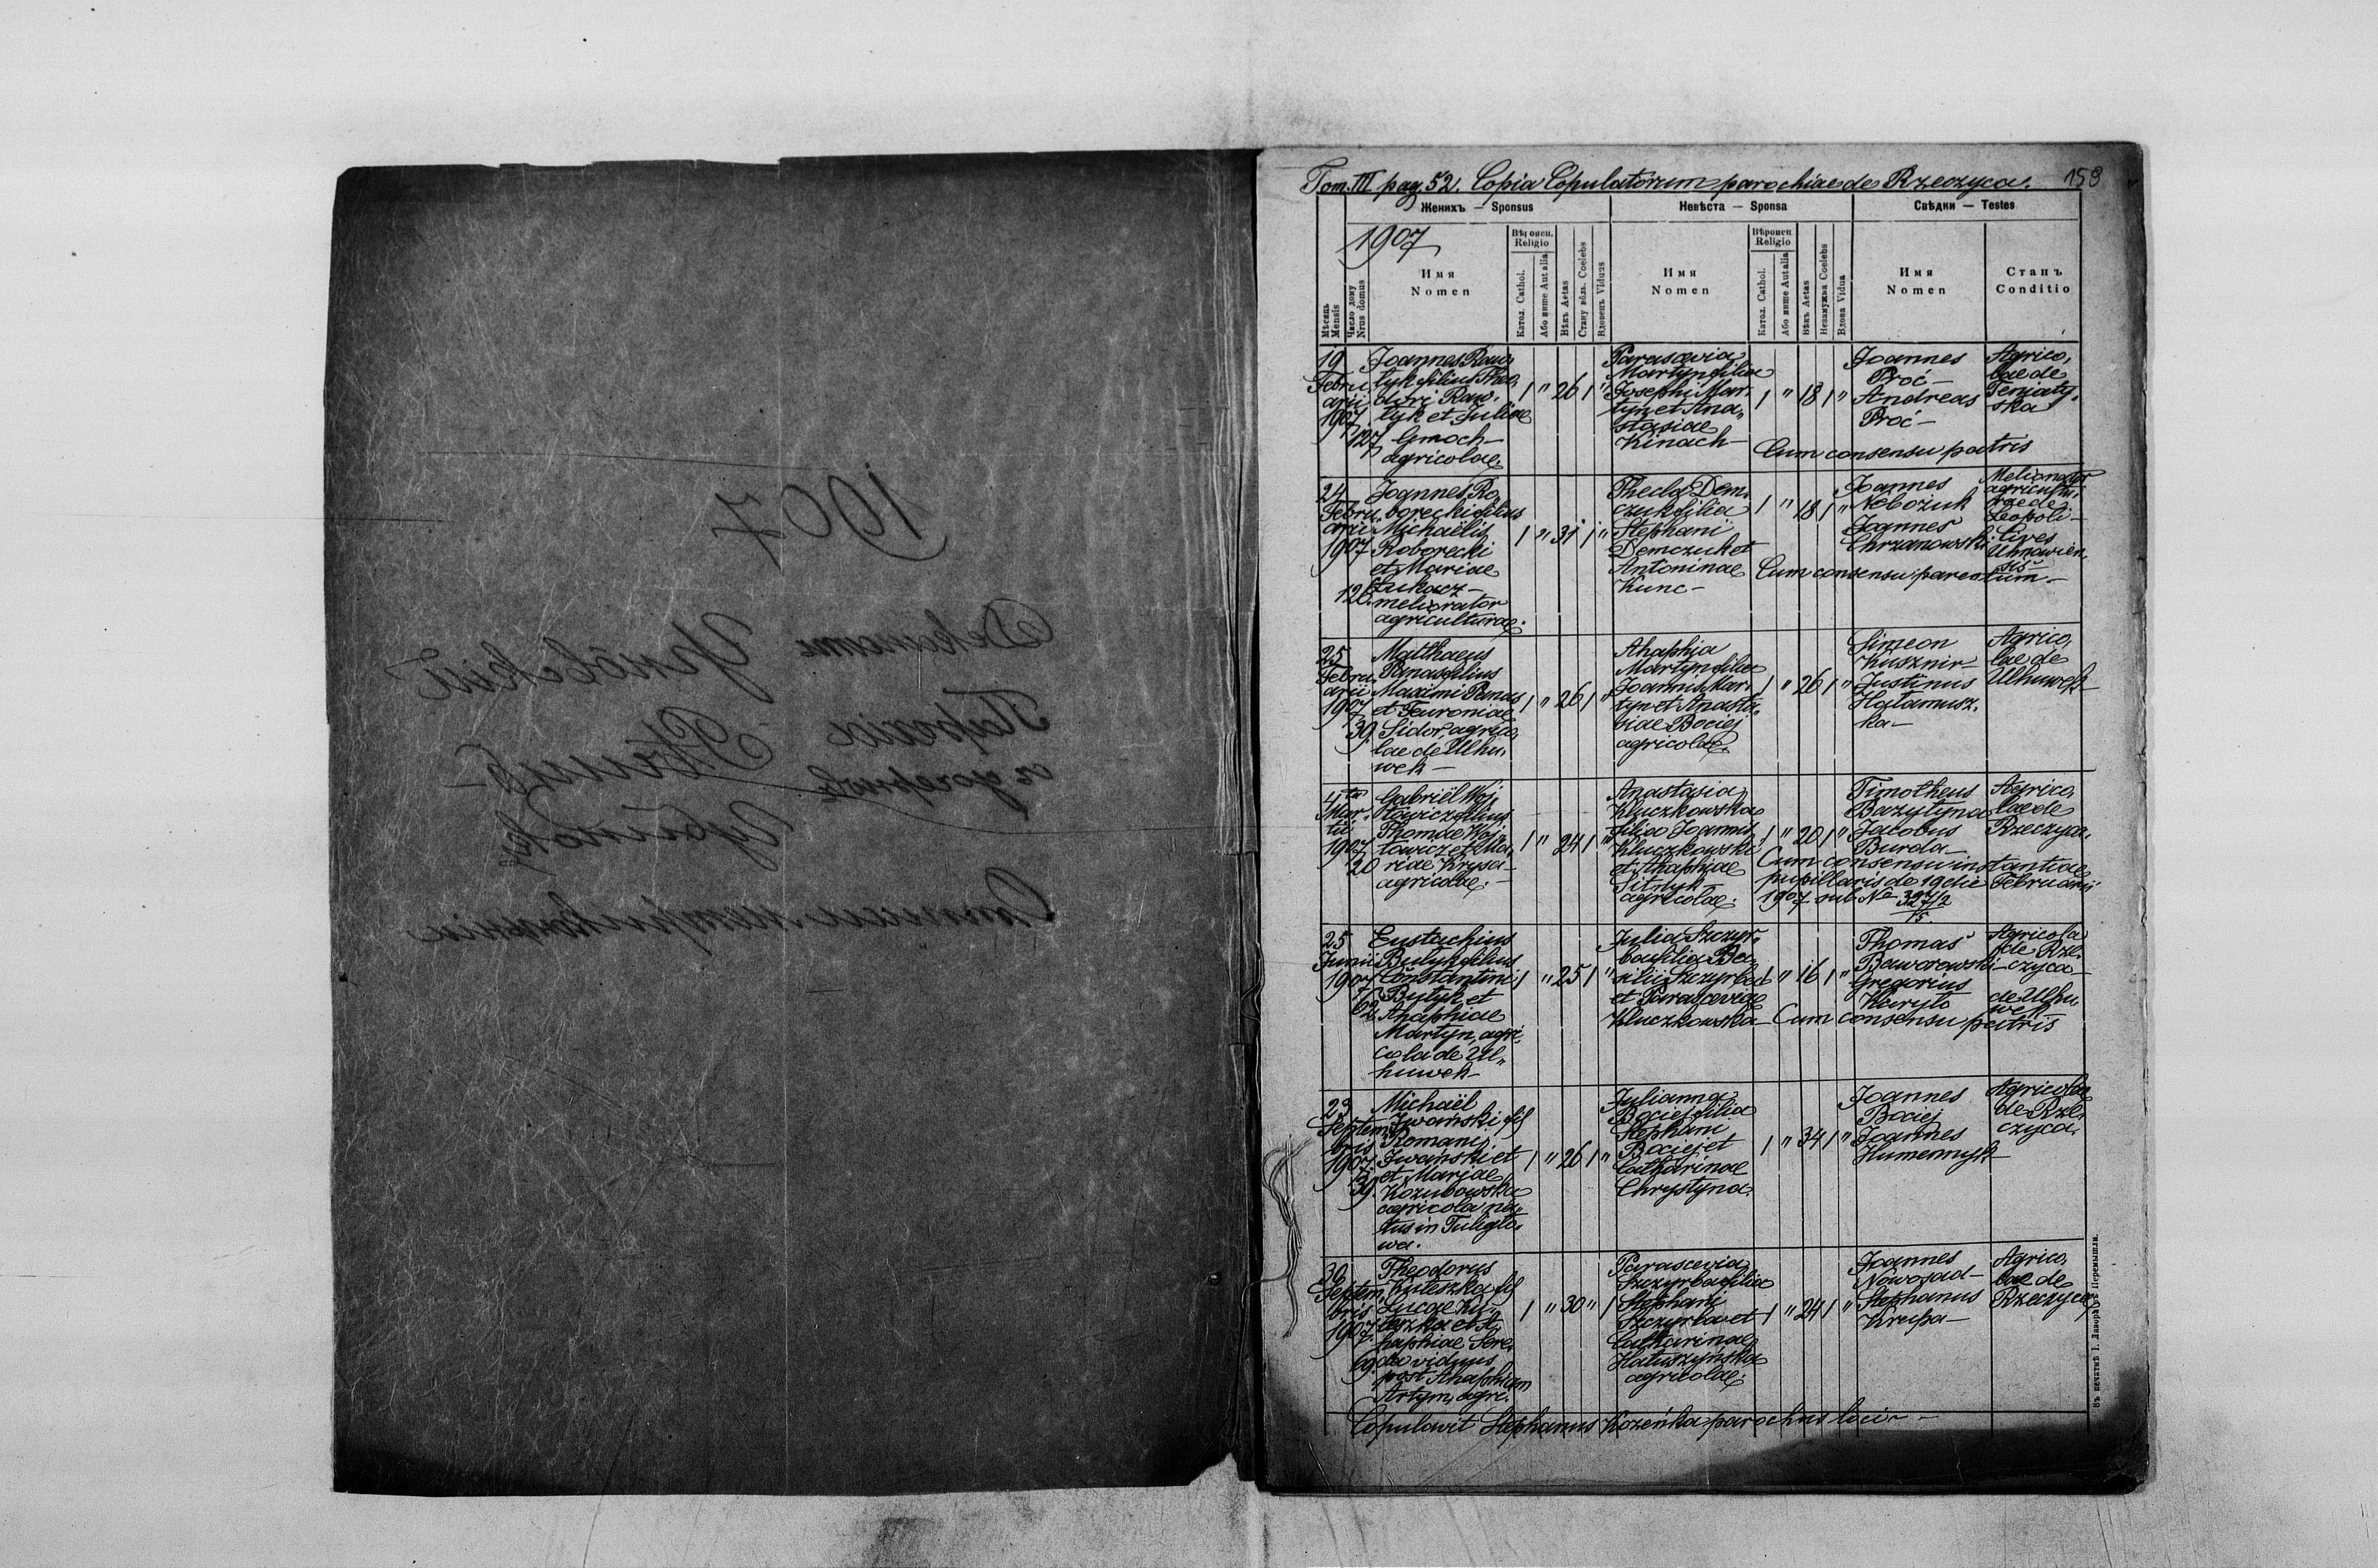 1907
Деканатъ Угнôвскій
Парохія Рѣчиця
съ дочернею
Tom. III pag. 52. Copia Copulatorum parochiae de Rzeczyca. 159
Женихъ — Sponsus
Невѣста — Sponsa
Свѣдки — Testes
1907
Мѣсяць Mensis
Число дому Nrus domus
Имя
Nomen
Вѣроисп. Religio
Катол. Cathol.
Або инше Aut alia
Вѣкъ Aetas
Стану вôль. Coelebs
Вдовець Viduus
Имя
Nomen
Вѣроисп Religio
Катол. Cathol.
Або инше Aut alia
Вѣкъ Aetas
Незамужна Coelebs
Вдова Vidua
Имя
Nomen
Станъ
Conditio
19
Febru
arii
1907
127
Joannes Raw,
tyk filius Theo,
dori Raw,
tyk et Juliae
Gmoch—
agricolae.
1 " 26 1 "
Parascevia
Martyn filia
Josephi Mar,
tyn et Ana,
stasiae
Kinach—
1 " 18 1 "
Joannes
Proć—
Andreas
Proć—
Agrico,
lae de
Teniaty,
ska
Cum consensu patris
24
Febru,
arii
1907
126
Joannes Ro,
borecki filius
Michaëlis
Roborecki
et Mariae
Łukacz—
meliorator
agriculturae.
1 " 31 1 "
Thecla Dem,
czuk filia
Stephani
Demczuk et
Antoninae
Kunc—
1 " 18 1 "
Joannes
Nebożuk
Joannes
Chrzanowski
Meliorator
agricultu,
rae de
Leopoli—
Cives
Uhnovien,
sis—
Cum consensu parentum—
25
Febru,
arii
1907
39
Matthaeus
Panas filius
Maximi Panas
et Feuroniae
Sidor agrico,
lae de Ulhu,
wek—
1 " 26 1 "
Ahaphia
Martyn filia
Joannis Mar,
tyn et Anasta,
siae Bociej
agricolae.
1 " 26 1 "
Simeon
Kusznir—
Justinus
Hatamusz,
ka—
Agrico,
lae de
Ulhuwek
4tu
Mar,
tii
1907
20
Gabriël Woj,
towicz filius
Thomae Woj,
towicz et Ma,
riae Krysa—
agricolae.—
1 " 24 1 "
Anastasia
Kluczkowska
filia Joannis
Kluczkowski
et Ahaphiae
Sitnyk—
agricolae.
1 " 20 1 "
Timotheus
Bazytyna
Jacobus
Burda—
Agrico,
lae de
Rzeczyca.
Cum consensu instantiae
pupillaris de 19 die Februarii
1907 sub №
25
Junii
1907
62
Eustachius
Butyk filius
Constantini
Butyk et
Ahaphiae
Martyn, agri,
cola de Ul,
huwek—
1 " 25 1 "
Julia Szczyr,
ba filia Ba,
silii Szczyrba
et Parasceviae
Kluczkowska—
1 " 16 1 "
Thomas
Baworowski—
Gregorius
Koryto
Agricola
de Rze,
czyca—
de Ulhu
wek
Cum consensu patris
23
Septem
bris
1907
39
Michaël
Iwański fil
Romani
Iwański et
et Mariae
Kozubowska
agricola na,
tus in Tuligło,
wa.
1 " 26 1 "
Julianna
Bociej filia
Stephani
Bociej et
Catharinae
Chrystyna.
1 " 34 1 "
Joannes
Bociej
Joannes
Humennyk—
Agricolae
de Rze,
czyca.
30
Septem,
bris
1907
69
Theodorus
Kuteszka fil
Lucae Ku,
teszka et A,
haphiae Sere,
da viduus
post Ahaphiam
Artym, agri.
1 " 30 " 1
Parascevia
Szczyrba filia
Stephani
Szczyrba et
Catharinae
Hatuszyńska
agricolae.
1 " 24 1 "
Joannes
Nowosad—
Stephanus
Krupa—
Agrico,
lae de
Rzeczyca
Copulavit Stephanus Kozeńka parochus loci—
Въ печатнѣ I. Лазора въ Перемышли.